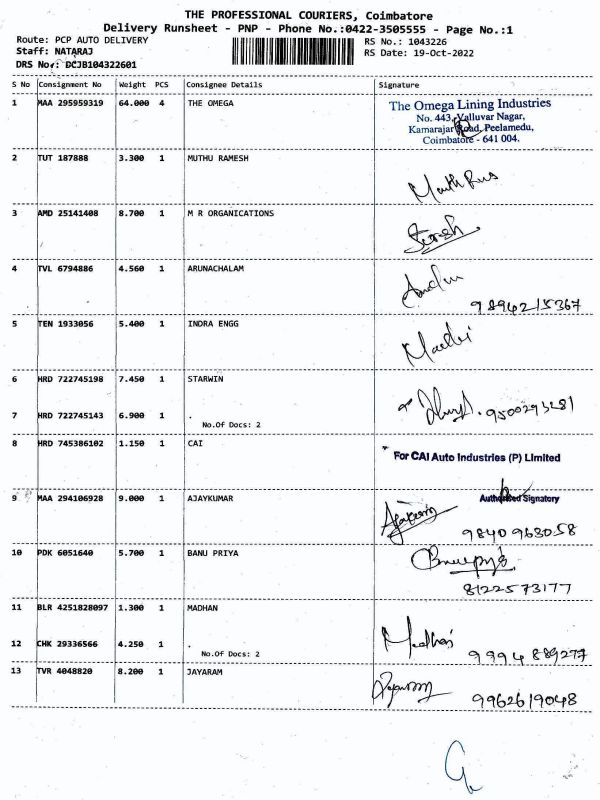 THE PROFESSIONAL COURIERS, Coimbatore
Delivery Runsheet - PNP - Phone No.:0422-3505555 - Page No.:1
Route: PCP AUTO DELIVERY
RS No.: 1043226
Staff: NATARAJ
RS Date: 19-Oct-2022
DRS No.: DCJB104322601
S No Consignment No Weight PCS Consignee Details Signature
1 MAA 295959319 64.000 4 THE OMEGA
The Omega Lining Industries
No. 443, Valluvar Nagar,
Kamarajar Road, Peelamedu,
Coimbatore - 641 004.
2 TUT 187888 3.300 1 MUTHU RAMESH
3 AMD 25141408 8.700 1 M R ORGANICATIONS
4 TVL 6794886 4.560 1 ARUNACHALAM
9894215367
5 TEN 1933056 5.400 1 INDRA ENGG
6 HRD 722745198 7.450 1 STARWIN
7 HRD 722745143 6.900 1 .
No.Of Docs: 2
8 HRD 745386102 1.150 1 CAI
For CAI Auto Industries (P) Limited
Authorised Signatory
9 MAA 294106928 9.000 1 AJAYKUMAR
9840963058
10 PDK 6051640 5.700 1 BANU PRIYA
8122573177
11 BLR 4251828097 1.300 1 MADHAN
12 CHK 29336566 4.250 1 .
No.Of Docs: 2
9994889277
13 TVR 4048820 8.200 1 JAYARAM
9962619048